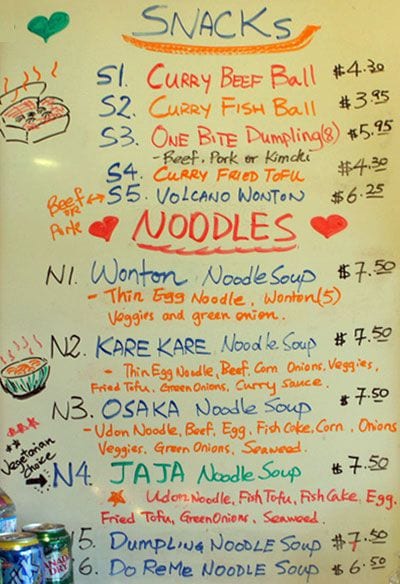 SNACKS
S1. CURRY BEEF BALL $4.30
S2. CURRY FISH BALL $3.95
S3. ONE BITE DUMPLING(8) $5.95
- Beef, Pork or Kimchi
S4. CURRY FRIED TOFU $4.30
Beef or Pork ↔ S5. VOLCANO WONTON $6.25
NOODLES
N1. Wonton Noodle Soup $7.50
- Thin Egg Noodle, Wonton(5)
Veggies and green onion.
N2. KARE KARE Noodle Soup $7.50
- Thin Egg Noodle, Beef, Corn Onions, Veggies,
Fried Tofu, Green Onions, Curry Sauce.
N3. OSAKA Noodle Soup $7.50
- Udon Noodle, Beef, Egg, Fish Cake, Corn, Onions
Veggies, Green Onions, Seaweed.
Vegetarian Choice
N4. JAJA Noodle Soup $7.50
Udon Noodle, Fish Tofu, Fish Cake, Egg,
Fried Tofu, Green Onions, Seaweed.
5. DUMPLING NOODLE SOUP $7.50
6. DO RE ME NOODLE SOUP $6.50
CANADA DRY